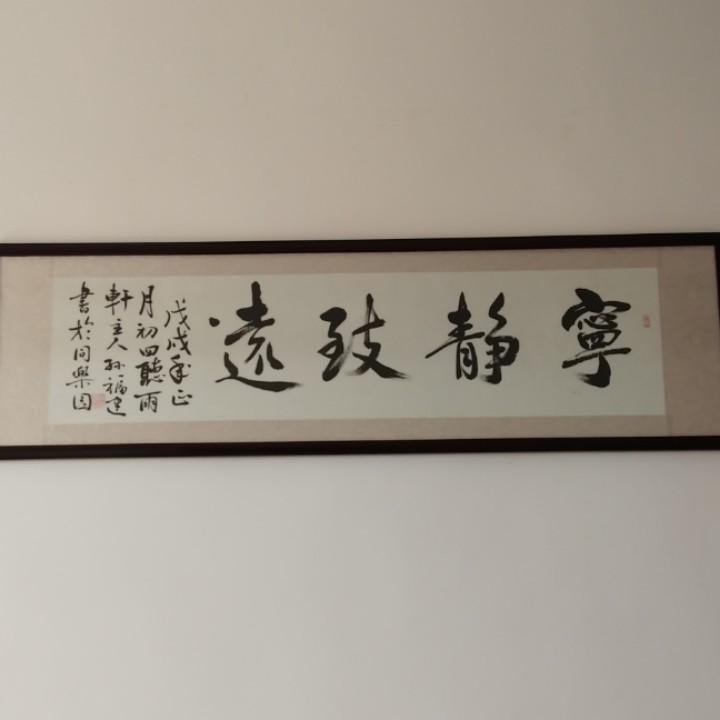 寧靜致遠
戊戌年正
月初四聽雨
軒主人孫福建
書於同樂園